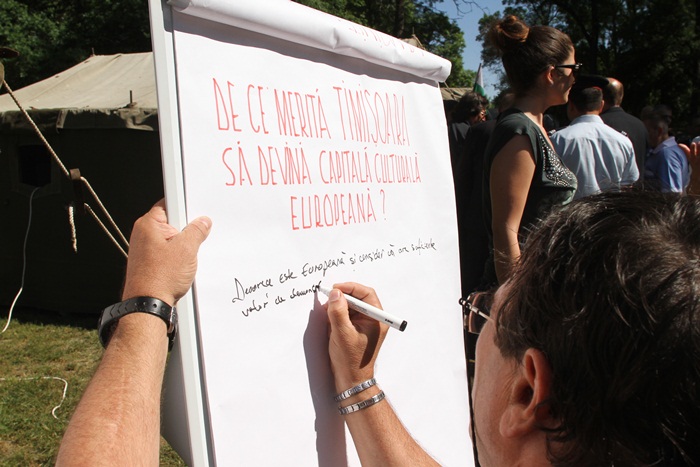 DE CE MERITĂ TIMIȘOARA
SĂ DEVINĂ CAPITALĂ CULTURALĂ
EUROPEANĂ ?
Deoarece este Europeană și consider că are suficiente
valori de